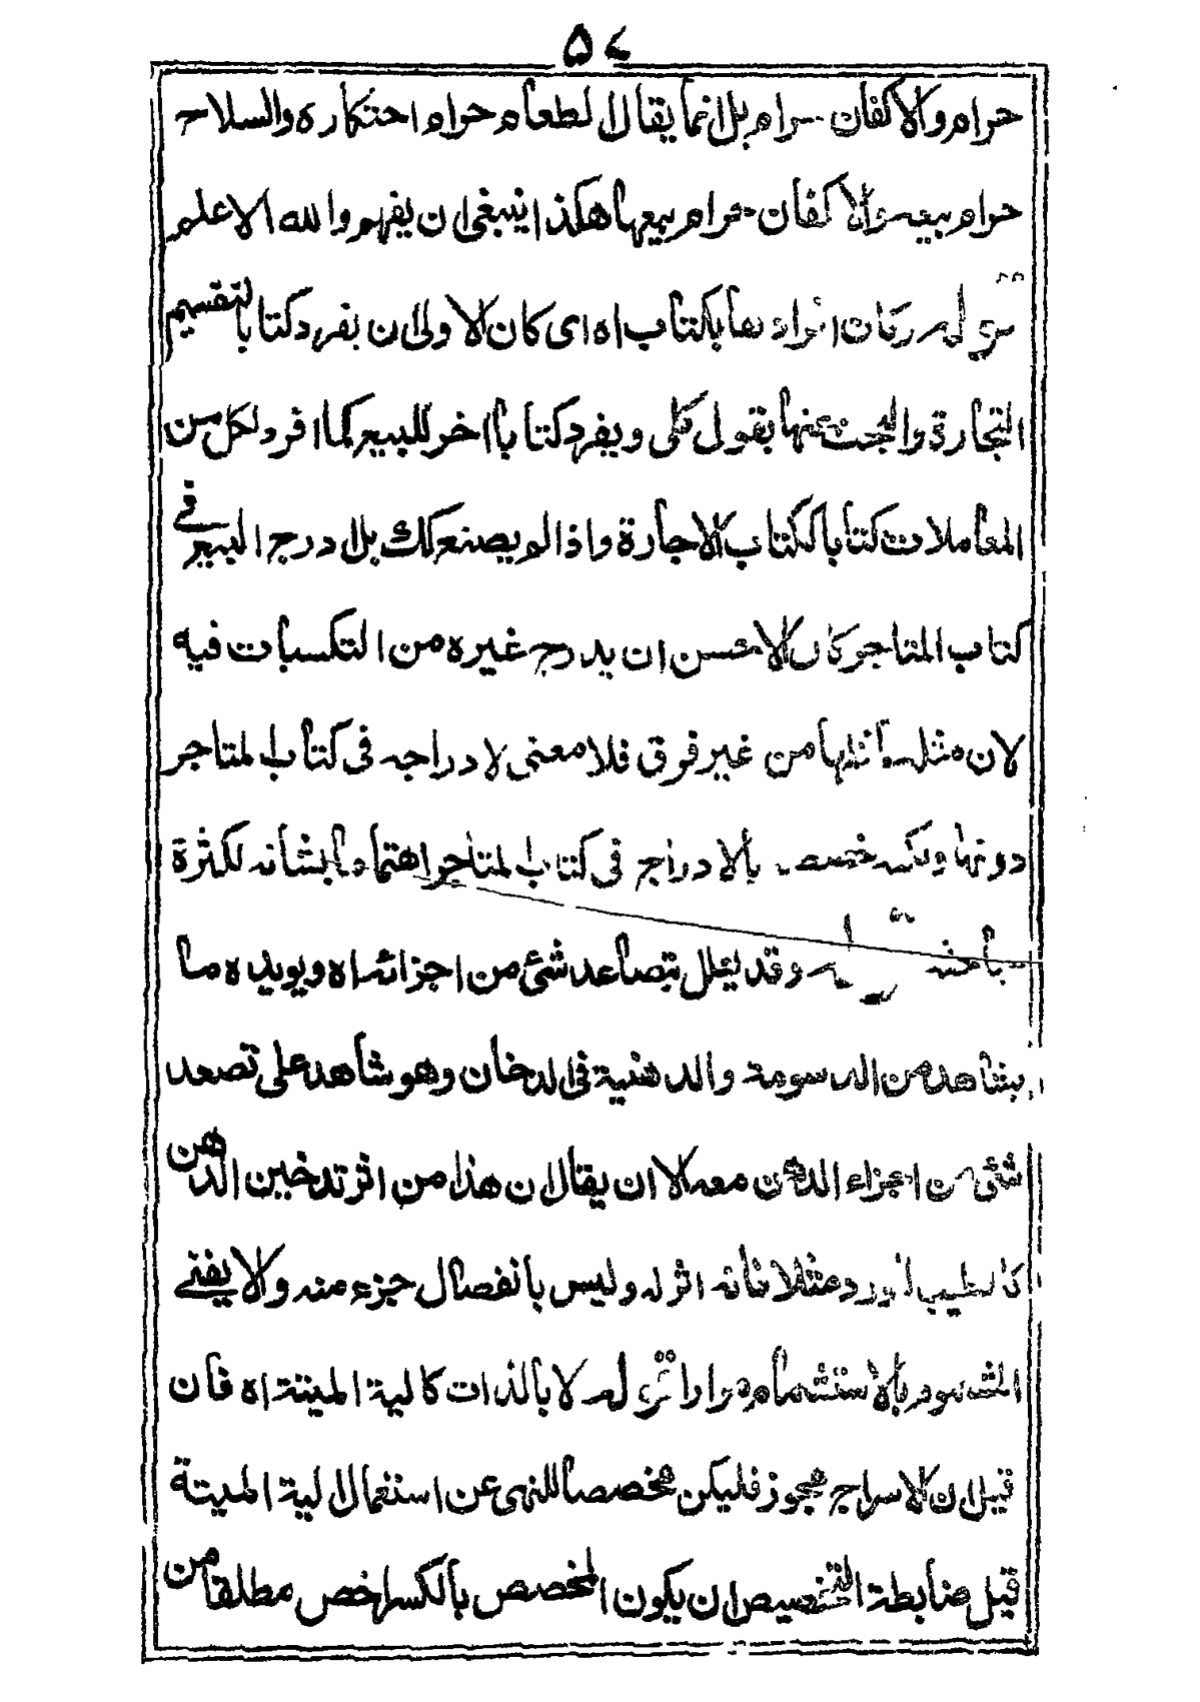 ۵۷
حرام والاكفان حرام بل انما يقال الطعام حرام احتكاره والسلاح
حرام بيعه والاكفان حرام بيعها هكذا ينبغى ان يفهم والله الاعلم
قوله افرادها بكتاب اه اى كان الاولى ان يفرد كتابا لتقسيم
التجارة والبحث عنها بقول كلى ويفرد كتابا اخر للبيع كما افرد لكل من
المعاملات كتابا ككتاب الاجارة واذا لم يصنع كك بل ادرج البيع فى
كتاب المتاجر كان الاحسن ان يدرج غيره من التكسبات فيه
لان مثل من غير فرق فلا معنى لادراجه فى كتاب المتاجر
دونها ولكنه خصصه بالادراج فى كتاب المتاجر اهتماما بشانه لكثرة
مباحثه قوله وقد يعلل بتصاعد شئ من اجزائه اه ويويده ما
يشاهد من الدسومة والدهنية فى الدخان وهو شاهد على تصعد
شئ من اجزاء الدهن معه الا ان يقال ان هذا من اثر تدخين الدهن
كالطيب الورد مثلا فانه اثر له وليس بانفصال جزء منه والا يفنے
المشموم بالاستشمام مرارا قوله لا بالذات كالية الميتة اه فان
قيل ان الاسراج مجوز فليكن مخصصا للنهى عن استعمال الية الميتة
قيل ضابطة التخصيص ان يكون المخصص بالكسر اخص مطلقا من